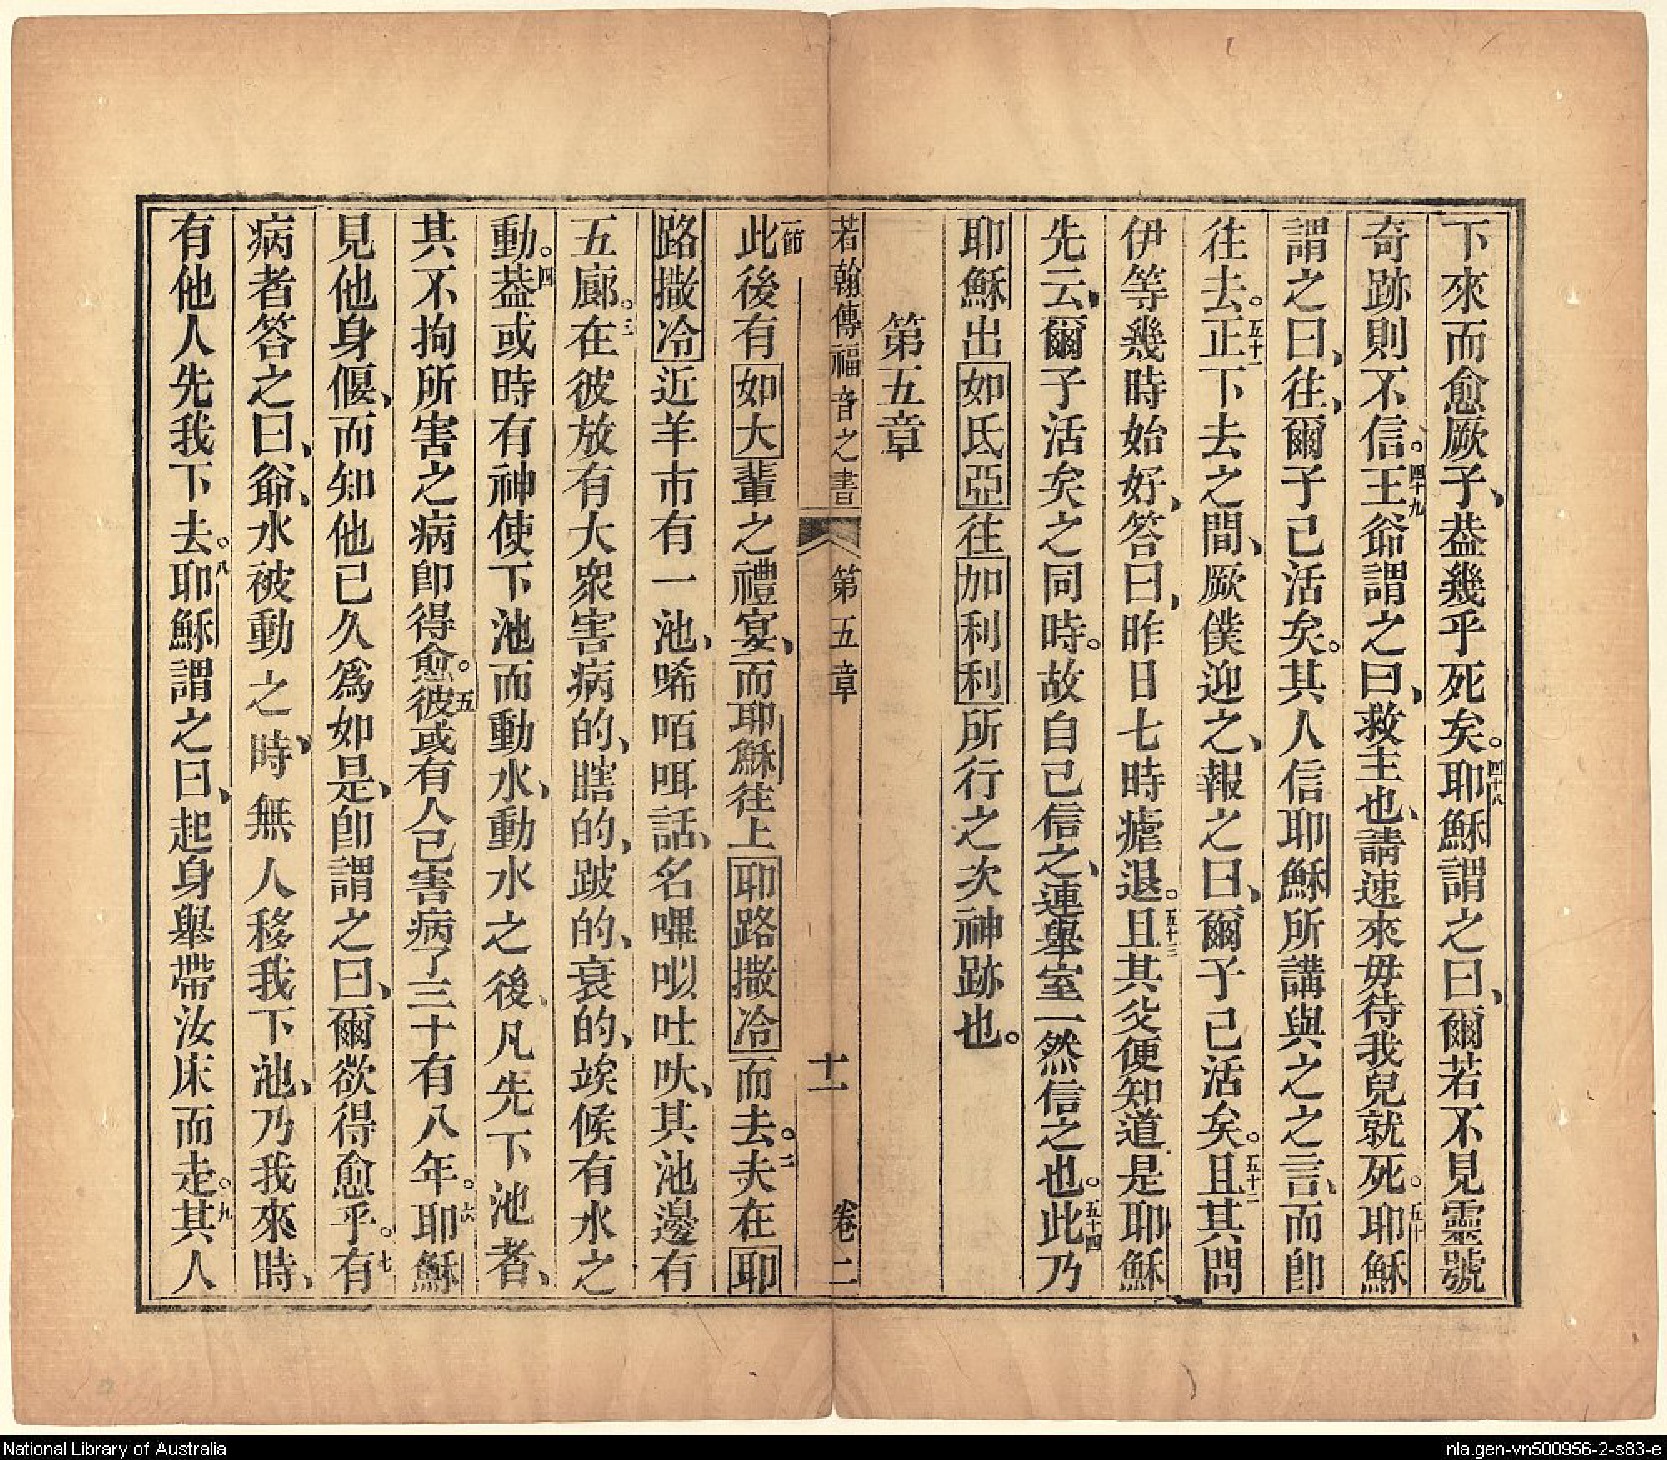 下來而愈厥子、葢幾乎死矣。四十八耶穌謂之曰、爾若不見靈號
奇跡則不信。四十九王爺謂之曰、救主也、請速來毋待我兒就死。五十耶穌
謂之曰、往、爾子已活矣。其人信耶穌所講與之之言、而即
往去。五十一正下去之間、厥僕迎之、報之曰、爾子已活矣。五十二且其問
伊等幾時始好、答曰、昨日七時瘧退。五十三且其父便知道是耶穌
先云、爾子活矣之同時。故自己信之、連舉室一然信之也。五十四此乃
耶穌出如氐亞往加利利所行之次神跡也。
第五章
若翰傳福音之書 第五章 十一 卷二
一節此後有如大輩之禮宴、而耶穌往上耶路撒冷而去。二夫在耶
路撒冷近羊市有一池、唏咟咡話、名嗶㕥吐吙、其池邊有
五廊。三在彼放有大衆害病的、瞎的、跛的、衰的、竢候有水之
動。四葢或時有神使下池而動水、動水之後、凡先下池者、
其不拘所害之病即得愈。五彼或有人已害病了三十有八年。六耶穌
見他身偃、而知他已久為如是、即謂之曰、爾欲得愈乎。七有
病者答之曰、爺、水被動之時、無人移我下池、乃我來時、
有他人先我下去。八耶穌謂之曰、起身舉帶汝床而走。九其人
National Library of Australia
nla.gen-vn500956-2-s83-e